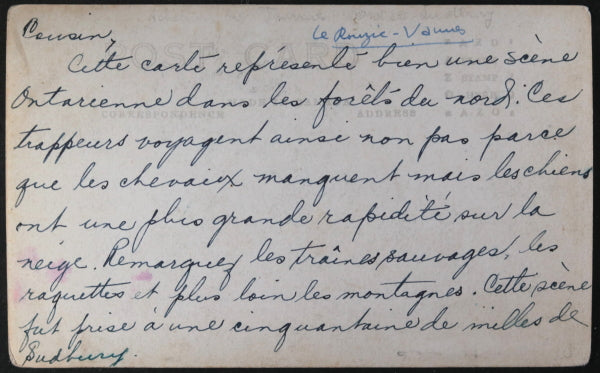 Le Rouzic - Vannes
Cousin,
Cette carte représente bien une scène
Ontarienne dans les forêts du nord. Ces
trappeurs voyagent ainsi non pas parce
que les chevaux manquent mais les chiens
ont une plus grande rapidité sur la
neige. Remarquez les traînes sauvages, les
raquettes et plus loin les montagnes. Cette scène
fut prise à une cinquantaine de milles de
Sudbury.
POST CARD
CORRESPONDENCE
ADDRESS
STAMP
AZO